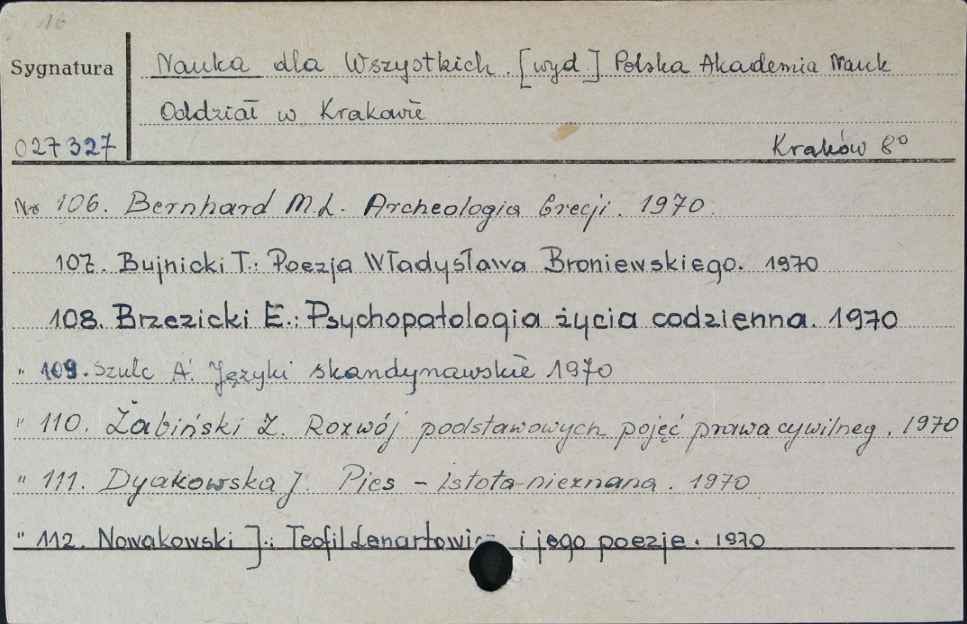 16
Sygnatura
Nauka dla Wszystkich. [wyd] Polska Akademia Nauk
Oddział w Krakowie
027327
Kraków 8°
Nr 106. Bernhard M.L. Archeologia Grecji. 1970.
107. Bujnicki T.: Poezja Władysława Broniewskiego. 1970
108. Brzezicki E.: Psychopatologia życia codzienna. 1970
" 109. Szulc A. Języki skandynawskie 1970
" 110. Żabiński Z. Rozwój podstawowych pojęć prawa cywilneg. 1970
" 111. Dyakowska J. Pies - istota nieznana. 1970
" 112. Nowakowski J.: Teofil Lenartowicz i jego poezje. 1970